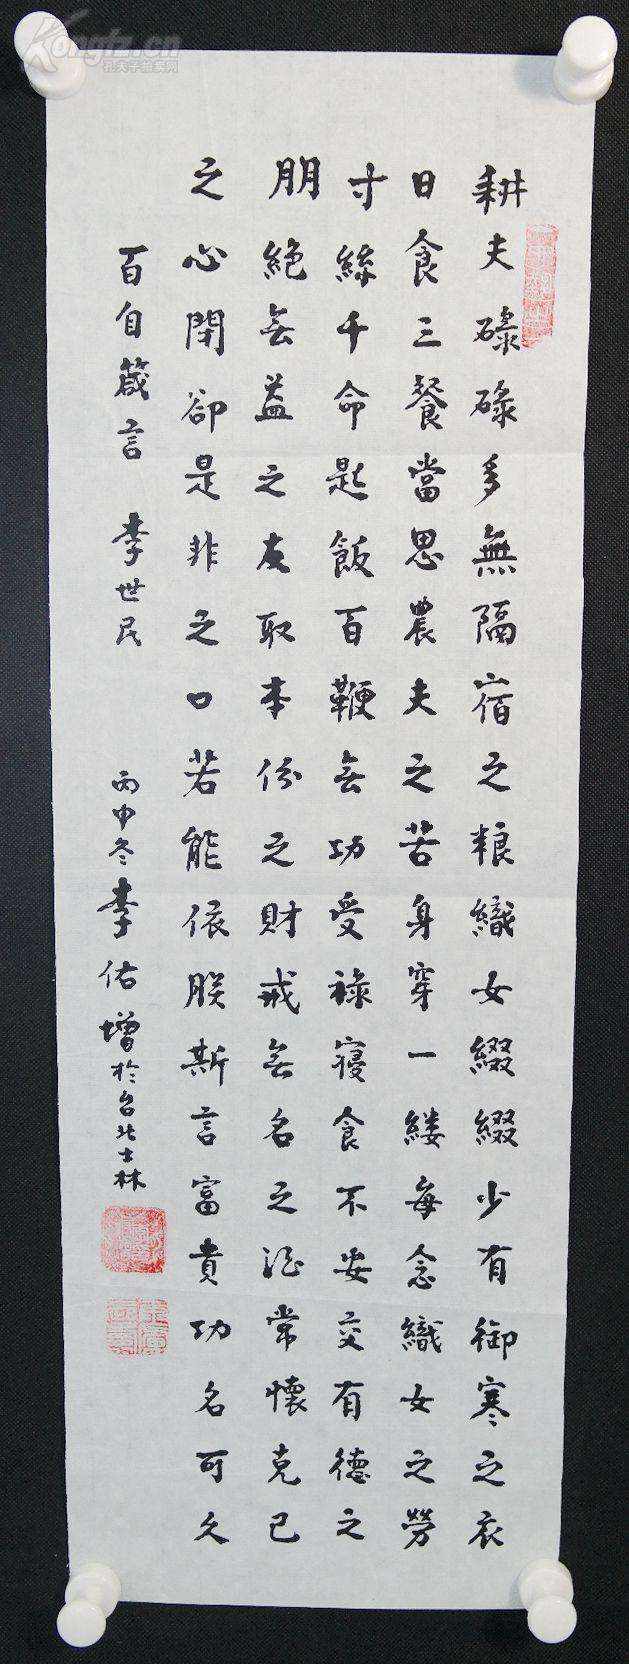 耕夫碌碌多無隔宿之粮織女綴綴少有御寒之衣
日食三餐當思農夫之苦身穿一縷每念織女之勞
寸絲千命匙飯百鞭無功受祿寢食不安交有德之
朋絕無益之友取本份之財戒無名之酒常懷克已
之心閉卻是非之口若能依朕斯言富貴功名可久
百自箴言 李世民
丙申冬李佑增於台北士林
Kongfz.cn
孔夫子拍卖网